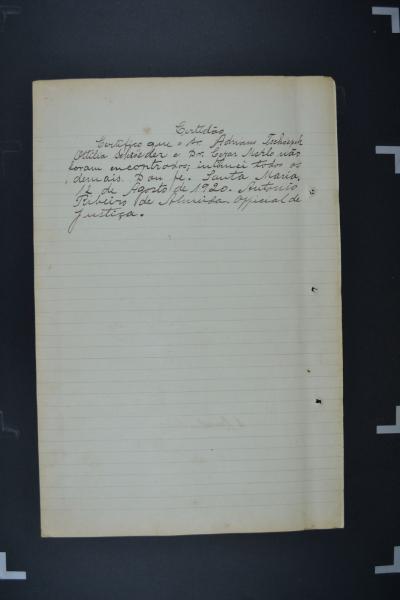 Certidão
Certifico que o Sr.
Ottilia Schröeder e Dr. Cezar Merlo não
foram encontrados; intimei todos os
demais. Dou fé. Santa Maria,
de Agosto de 1920. Antonio
Ribeiro de Almeida. Official de
Justiça.